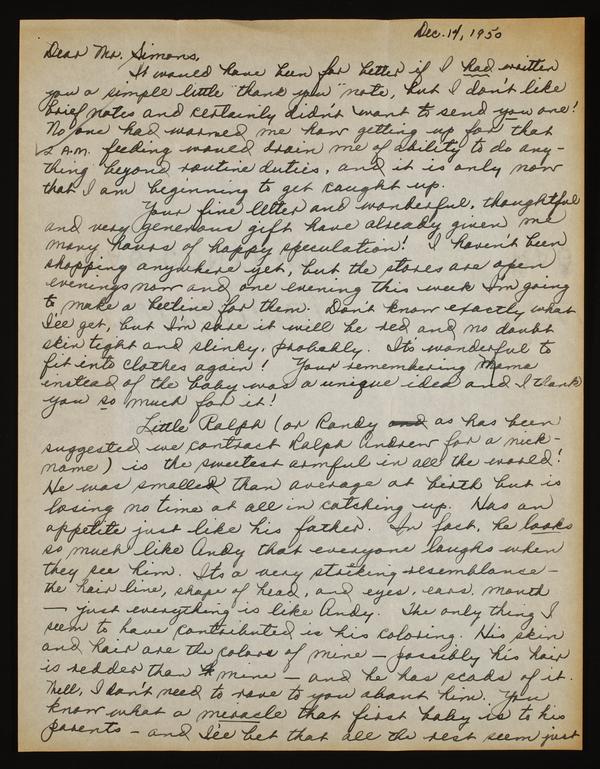 Dec. 14, 1950
Dear Mr. Simons,
It would have been far better if I had written
you a simple little "thank you" note, but I don't like
brief notes and certainly didn't want to send you one!
No one had warned me how getting up for that
2 A.M. feeding would drain me of ability to do any-
thing beyond routine duties, and it is only now
that I am beginning to get caught up.
Your fine letter and wonderful, thoughtful
and very generous gift have already given me
many hours of happy speculation! I haven't been
shopping anywhere yet, but the stores are open
evenings now and one evening this week I'm going
to make a beeline for them. Don't know exactly what
I'll get, but I'm sure it will be red and no doubt
skin tight and slinky, probably. It's wonderful to
fit into clothes again! Your remembering Mama
instead of the baby was a unique idea and I thank
you so much for it!
Little Ralph (or Randy and as has been
suggested we contract Ralph Andrew for a nick-
name) is the sweetest armful in all the world!
He was smaller than average at birth but is
losing no time at all in catching up. Has an
appetite just like his father. In fact, he looks
so much like Andy that everyone laughs when
they see him. Its a very striking resemblance -
the hair line, shape of head, and eyes, ears, mouth
- just everything is like Andy. The only thing I
seem to have contributed is his coloring. His skin
and hair are the colors of mine - possibly his hair
is redder than mine - and he has scads of it.
Well, I don't need to rave to you about him. You
know what a miracle that first baby is to his
parents - and I'll bet that all the rest seem just